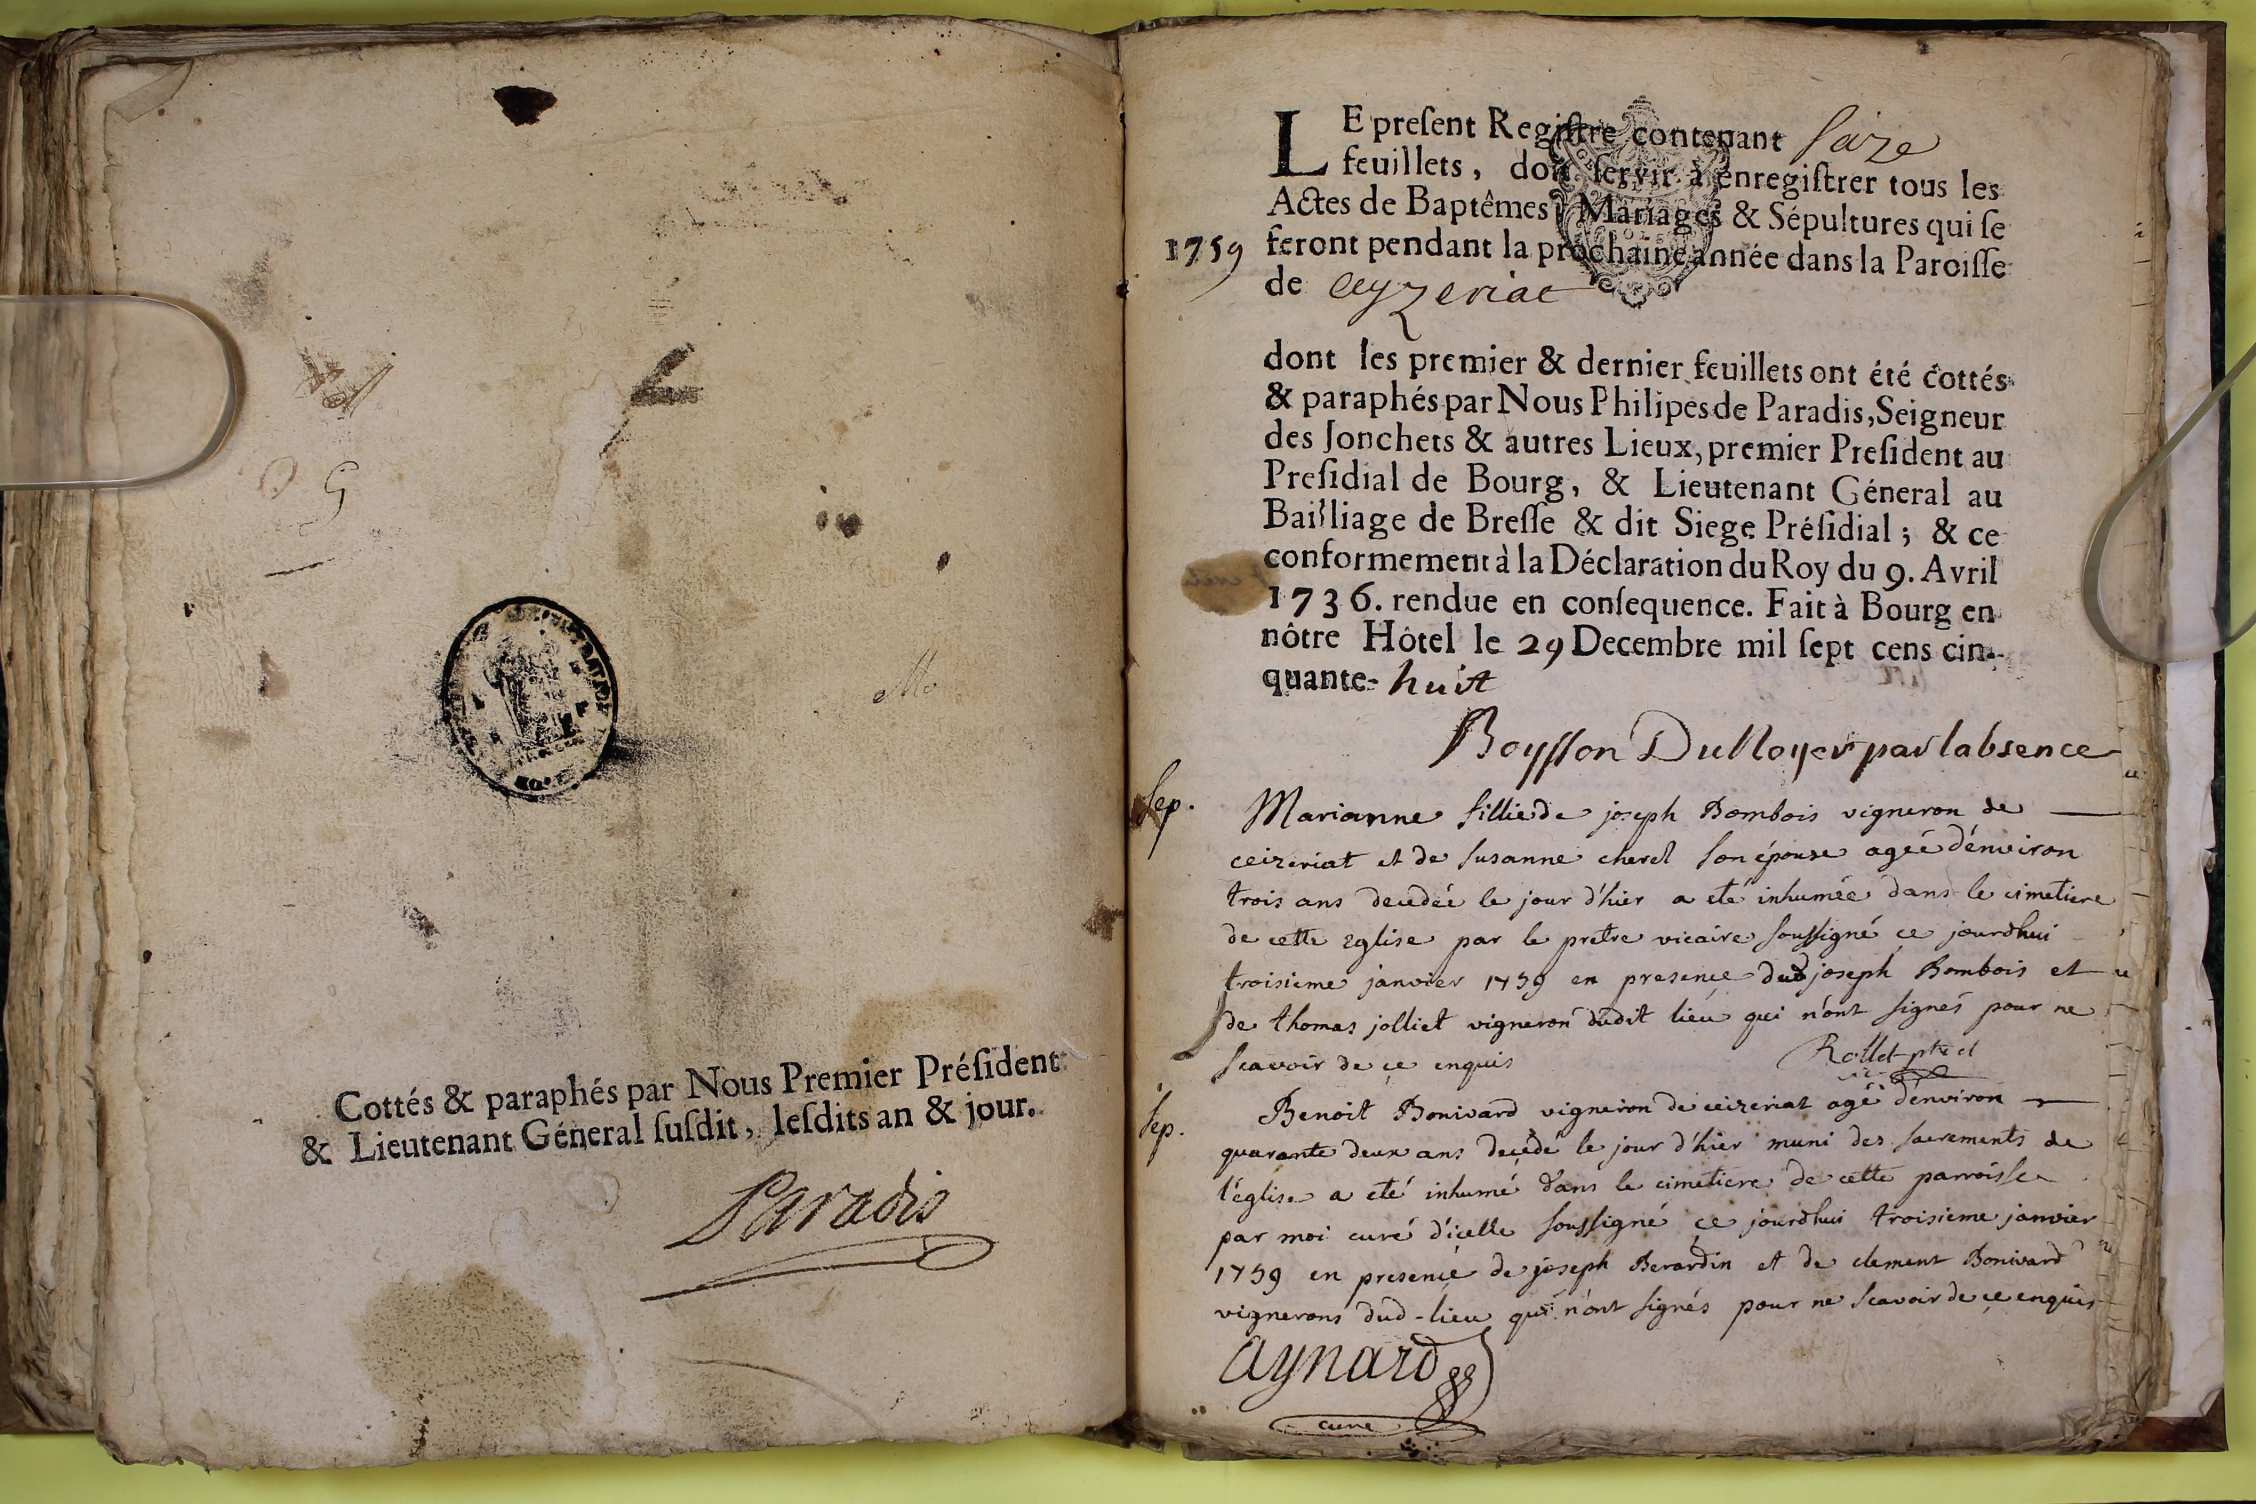 Cottés & paraphés par Nous Premier Préſident
& Lieutenant Géneral ſuſdit, leſdits an & jour.
Paradis
LE preſent Regiſtre contenant Saize
feuillets, doit ſervir à enregiſtrer tous les
Actes de Baptêmes, Mariages & Sépultures qui ſe
1759
feront pendant la prochaine année dans la Paroiſſe
de Ceyzeriat
dont les premier & dernier feuillets ont été cottés
& paraphés par Nous Philipes de Paradis, Seigneur
des Jonchets & autres Lieux, premier Preſident au
Preſidial de Bourg, & Lieutenant Géneral au
Bailliage de Breſſe & dit Siege Préſidial; & ce
conformement à la Déclaration du Roy du 9. Avril
1736. rendue en conſequence. Fait à Bourg en
nôtre Hôtel le 29 Decembre mil ſept cens cin-
quante-huit
par labsence
Sep.
Marianne fillie de joseph Bombois vigneron de
ceizeriat et de susanne cherel son épouse ageé d'énviron
trois ans decedée le jour d'hier a eté inhumée dans le cimetiere
de cette Eglise par le prêtre vicaire soussigné ce jourdhui
troisieme janvier 1759 en presençe dud joseph Bombois et
de thomas jolliet vigneron dudit lieu qui n'ont signés pour ne
scavoir de çe enquis
Rollet ptre et
Sep.
Benoit Bonivard vigneron de ceizeriat agé d'énviron
quarante deux ans decedé le jour d'hier muni des sacrements de
l'église a eté inhumé dans le cimetiere de cette parroisse
par moi curé d'icelle soussigné çe jourdhui troisieme janvier
1759 en presençe de joseph Berardin et de clement Bonivard
vignerons dud-lieu qui n'ont signés pour ne scavoir de çe enquis
Aynard
curé